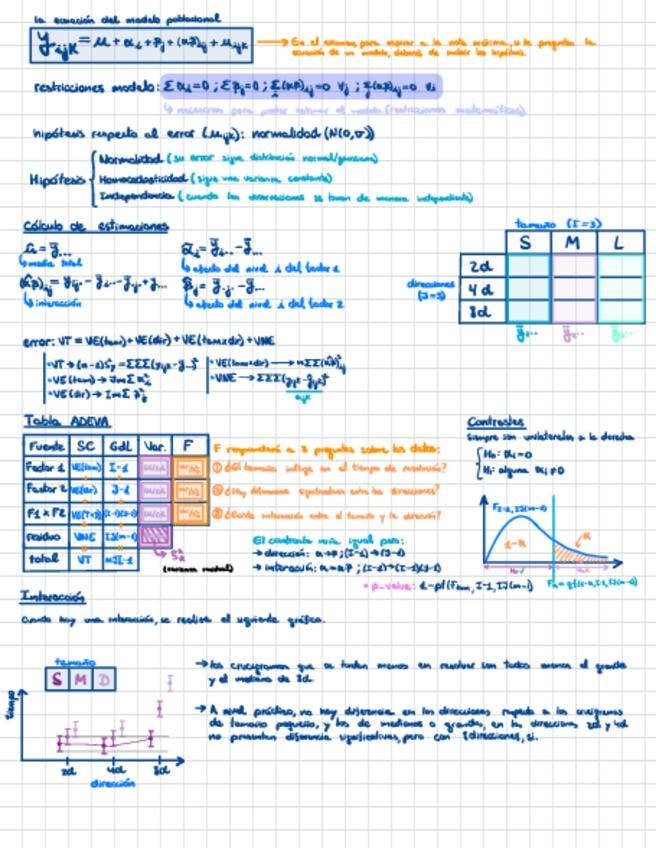 la ecuación del modelo poblacional
y_ijk = μ + α_i + β_j + (αβ)_ij + u_ijk → En el examen, para aspirar a la nota máxima, si te preguntan la ecuación de un modelo, deberás de incluir las hipótesis.
restricciones modelo: Σα_i=0 ; Σβ_j=0 ; Σ(αβ)_ij=0 ∀j ; Σ(αβ)_ij=0 ∀i
↳ necesarias para poder estimar el modelo (restricciones matemáticas)
hipótesis respecto al error (u_ijk): normalidad (N(0,σ))
Hipótesis
Normalidad (su error sigue distribución normal/gaussiana)
Homocedasticidad (sigue una varianza constante)
Independencia (cuando las observaciones se toman de manera independiente)
Cálculo de estimaciones
↳ media total
↳ efecto del nivel i del factor 1
↳ interacción
↳ efecto del nivel j del factor 2
tamaño (I=3)
S M L
direcciones (J=3)
2d
4d
8d
error: VT = VE(tam)+VE(dir)+VE(tamxdir)+VNE
Tabla ADEVA
Fuente SC GdL Var. F
Factor 1 VE(tam) I-1
Factor 2 VE(dir) J-1
F1 x F2 VE(TxD) (I-1)(J-1)
residuo VNE IJ(m-1)
total VT mIJ-1
F responderá a 3 preguntas sobre los datos:
① ¿El tamaño influye en el tiempo de resolución?
② ¿Hay diferencias significativas entre las direcciones?
③ ¿Existe interacción entre el tamaño y la dirección?
(varianza residual)
El contraste sería igual para:
→ dirección: α→β ; (I-1)→(J-1)
→ interacción: α→αβ ; (I-1)→(I-1)(J-1)
• p-value: 1-pf(F_tam, I-1, IJ(m-1))
Contrastes
Siempre son unilaterales a la derecha
H₀: α_i=0
H₁: alguna α_i≠0
F_I-1,IJ(m-1)
1-α
α
Interacción
Cuando hay una interacción, se realiza el siguiente gráfico.
tamaño
S M D
tiempo
2d 4d 8d
dirección
→ los crucigramas que se tardan menos en resolver son todos menos el grande y el mediano de 8d.
→ A nivel práctico, no hay diferencia en las direcciones respecto a los crucigramas de tamaño pequeño, y los de mediano o grande, en las direcciones 2d y 4d no presentan diferencia significativas, pero con 8 direcciones, sí.